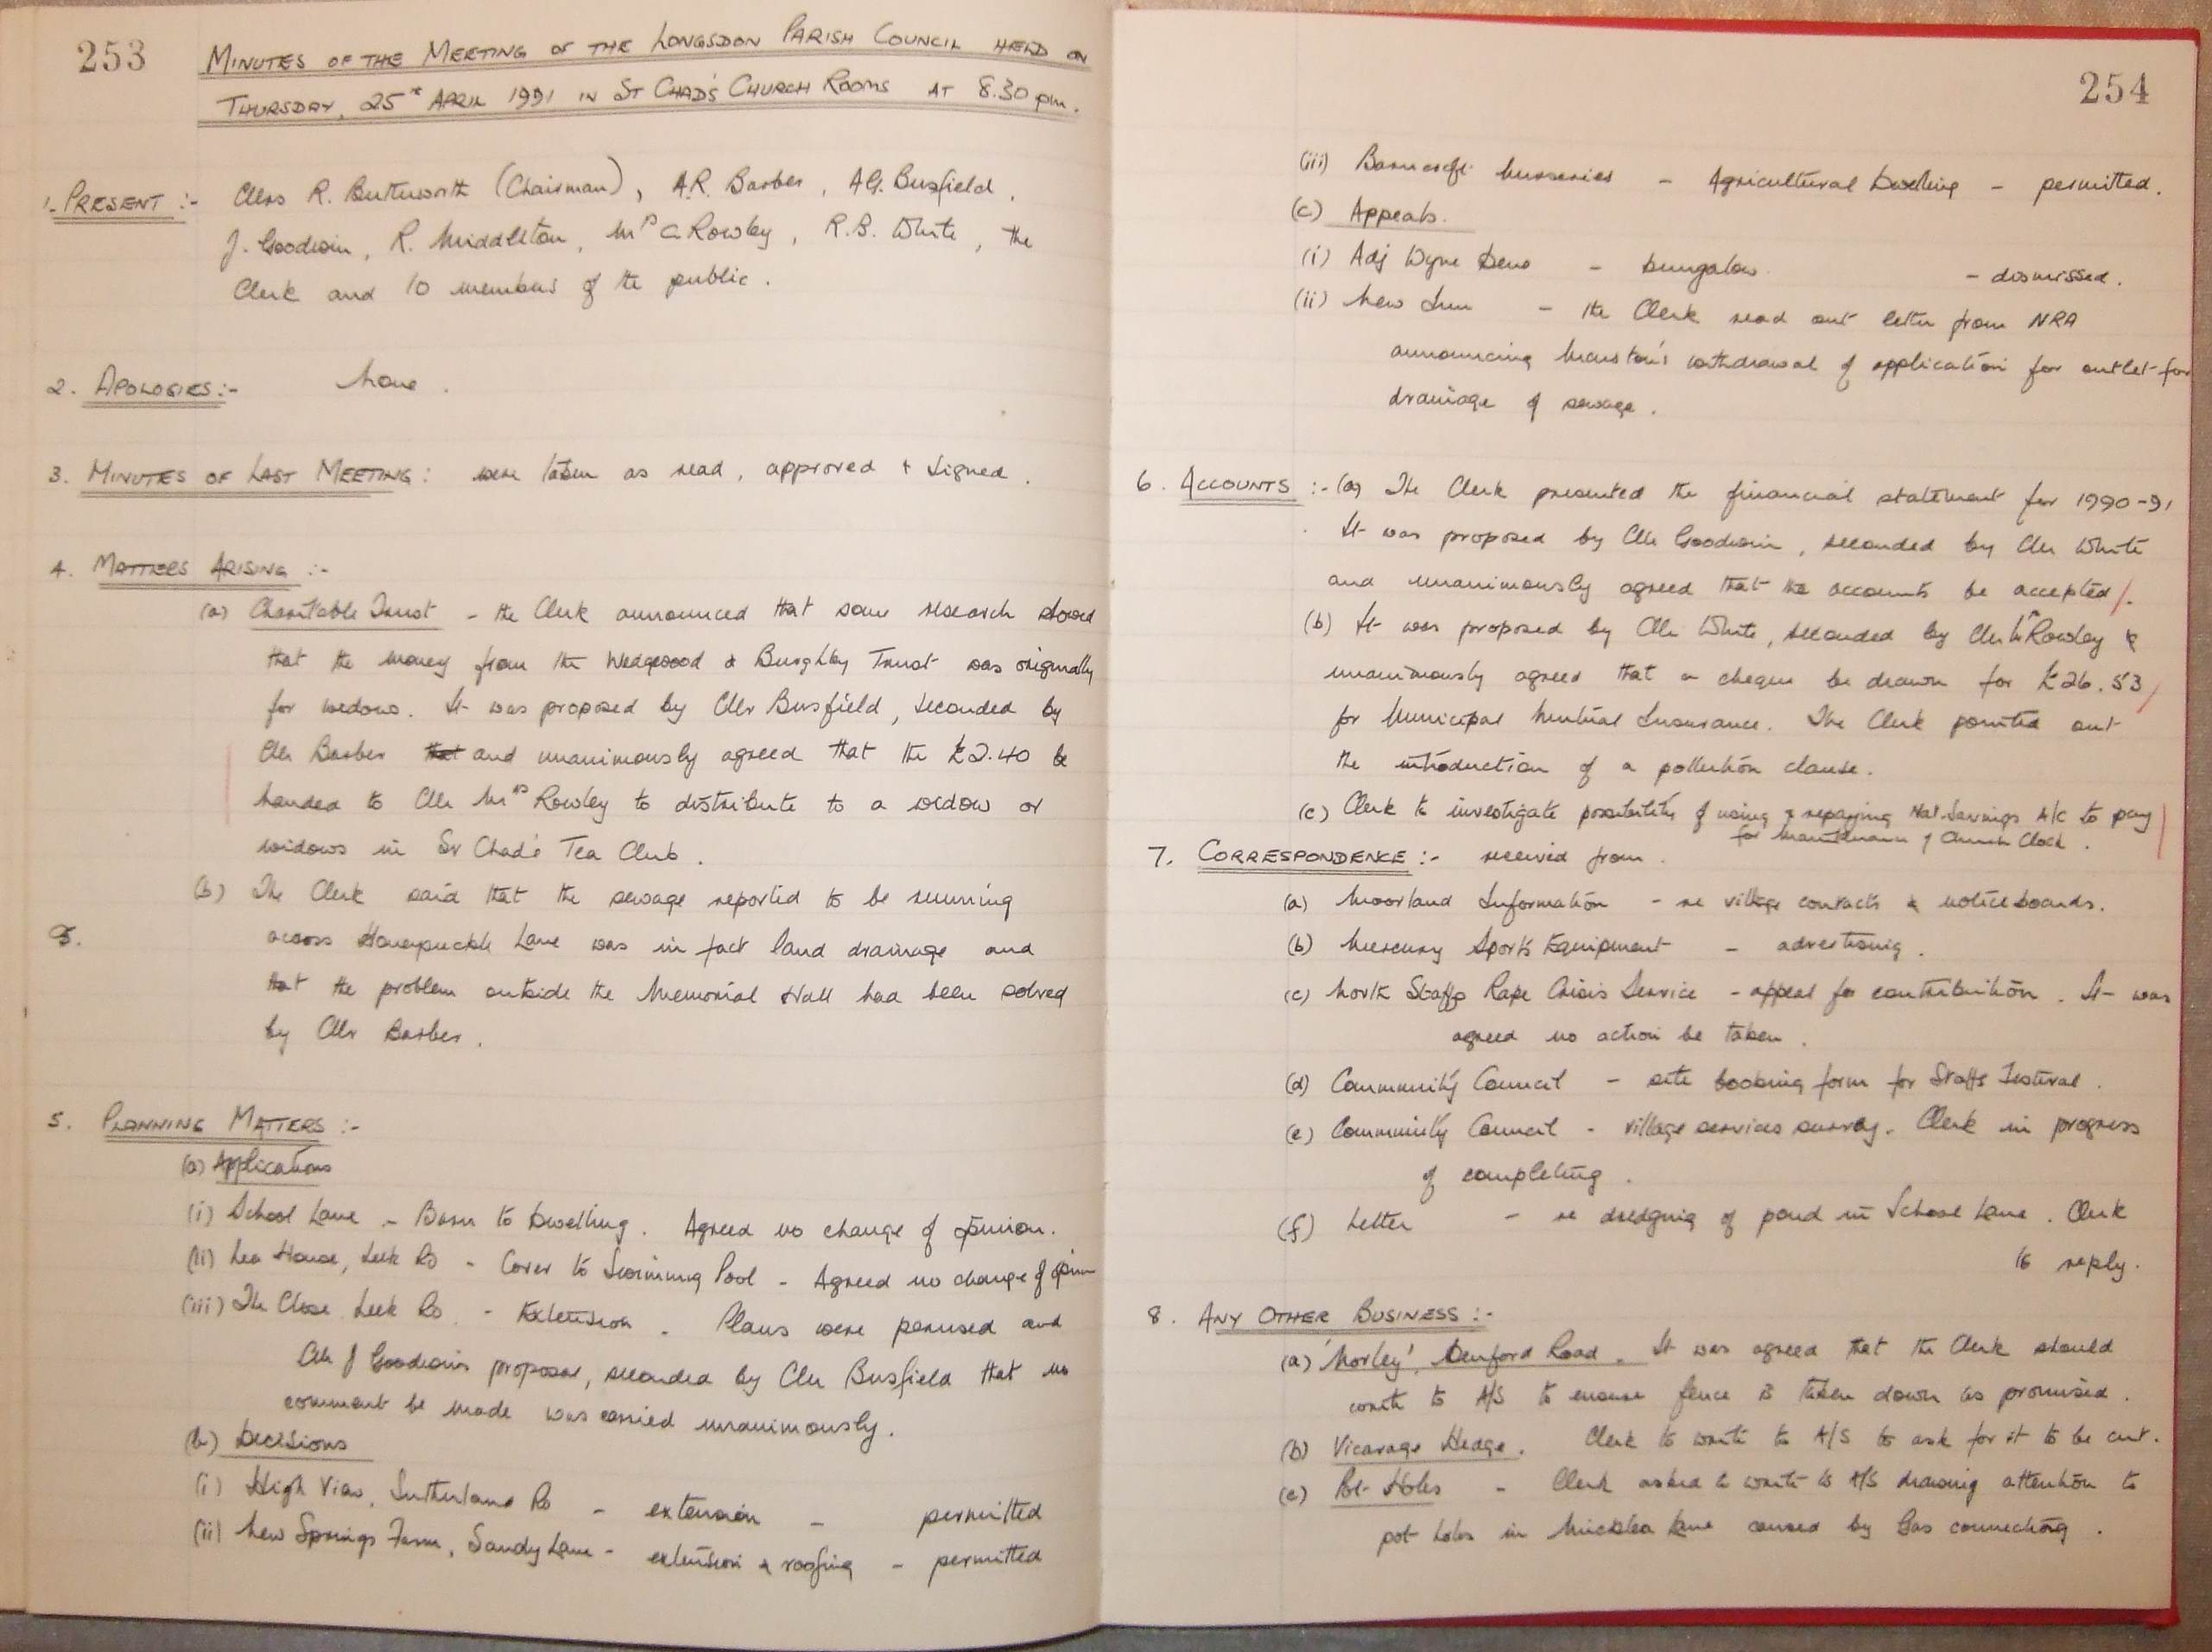 253
MINUTES OF THE MEETING OF THE LONGSDON PARISH COUNCIL HELD ON
THURSDAY, 25th APRIL 1991 IN ST CHAD'S CHURCH ROOMS AT 8.30 pm.
1. PRESENT :- Cllrs R. Butterworth (Chairman), A.R. Barber, A.G. Busfield,
J. Goodwin, R. Middleton, Mrs C Rowley, R.B. White, the
Clerk and 10 members of the public.
2. APOLOGIES :- None.
3. MINUTES OF LAST MEETING : were taken as read, approved + signed.
4. MATTERS ARISING :-
(a) Charitable Trust - the Clerk announced that some research showed
that the money from the Wedgewood & Burghby Trust was originally
for widows. It was proposed by Cllr Busfield, seconded by
Cllr Barber that and unanimously agreed that the £2.40 be
handed to Cllr Mrs Rowley to distribute to a widow or
widows in St Chad's Tea Club.
(b) The Clerk said that the sewage reported to be running
5. across Honeysuckle Lane was in fact land drainage and
that the problem outside the Memorial Hall had been solved
by Cllr Barber.
5. PLANNING MATTERS :-
(a) Applications
(i) School Lane - Barn to Dwelling. Agreed no change of opinion.
(ii) Lea House, Leek Rd - Cover to Swimming Pool - Agreed no change of opinion
(iii) The Close Leek Rd. - Extension. Plans were perused and
Cllr J Goodwin's proposal, seconded by Cllr Busfield that no
comment be made was carried unanimously.
(b) Decisions
(i) High View, Sutherland Rd - extension - permitted
(ii) New Springs Farm, Sandy Lane - extension & roofing - permitted
254
(iii) Barncroft Nurseries - Agricultural Dwelling - permitted.
(c) Appeals.
(i) Adj Wyne Dene - bungalow - dismissed.
(ii) New Inn - the Clerk read out letter from NRA
announcing Marston's withdrawal of application for outlet for
drainage of sewage.
6. ACCOUNTS :- (a) The Clerk presented the financial statement for 1990-91
It was proposed by Cllr Goodwin, seconded by Cllr White
and unanimously agreed that the accounts be accepted.
(b) It was proposed by Cllr White, seconded by Cllr Mrs Rowley &
unanimously agreed that a cheque be drawn for £26.53
for Municipal Mutual Insurance. The Clerk pointed out
the introduction of a pollution clause.
(c) Clerk to investigate possibility of using & repaying Nat. Savings A/c to pay
for maintenance of Church Clock.
7. CORRESPONDENCE :- received from.
(a) Moorland Information - re village contacts & noticeboards.
(b) Mercury Sports Equipment - advertising.
(c) North Staffs Rape Crisis Service - appeal for contribution. It was
agreed no action be taken.
(d) Community Council - site booking form for Staffs Festival.
(e) Community Council - village services survey. Clerk in progress
of completing.
(f) Letter - re dredging of pond in School Lane. Clerk
to reply.
8. ANY OTHER BUSINESS :-
(a) 'Morley', Denford Road. It was agreed that the Clerk should
write to A/S to ensure fence is taken down as promised.
(b) Vicarage Hedge. Clerk to write to A/S to ask for it to be cut.
(c) Pot Holes - Clerk asked to write to A/S drawing attention to
pot holes in Micklea Lane caused by Gas connecting.